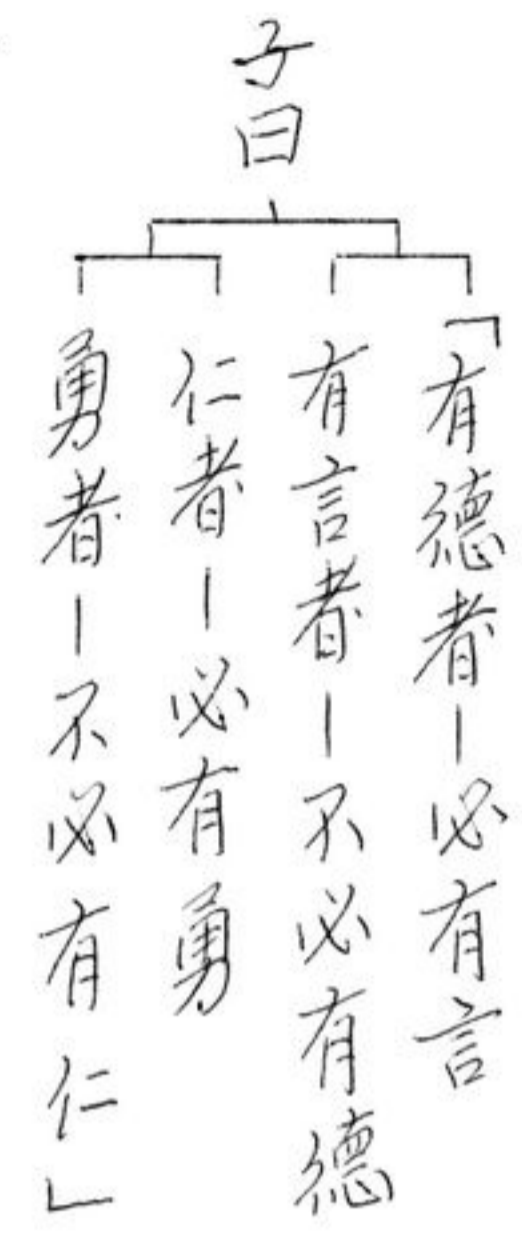 子曰
「有德者－必有言
有言者－不必有德
仁者－必有勇
勇者－不必有仁」